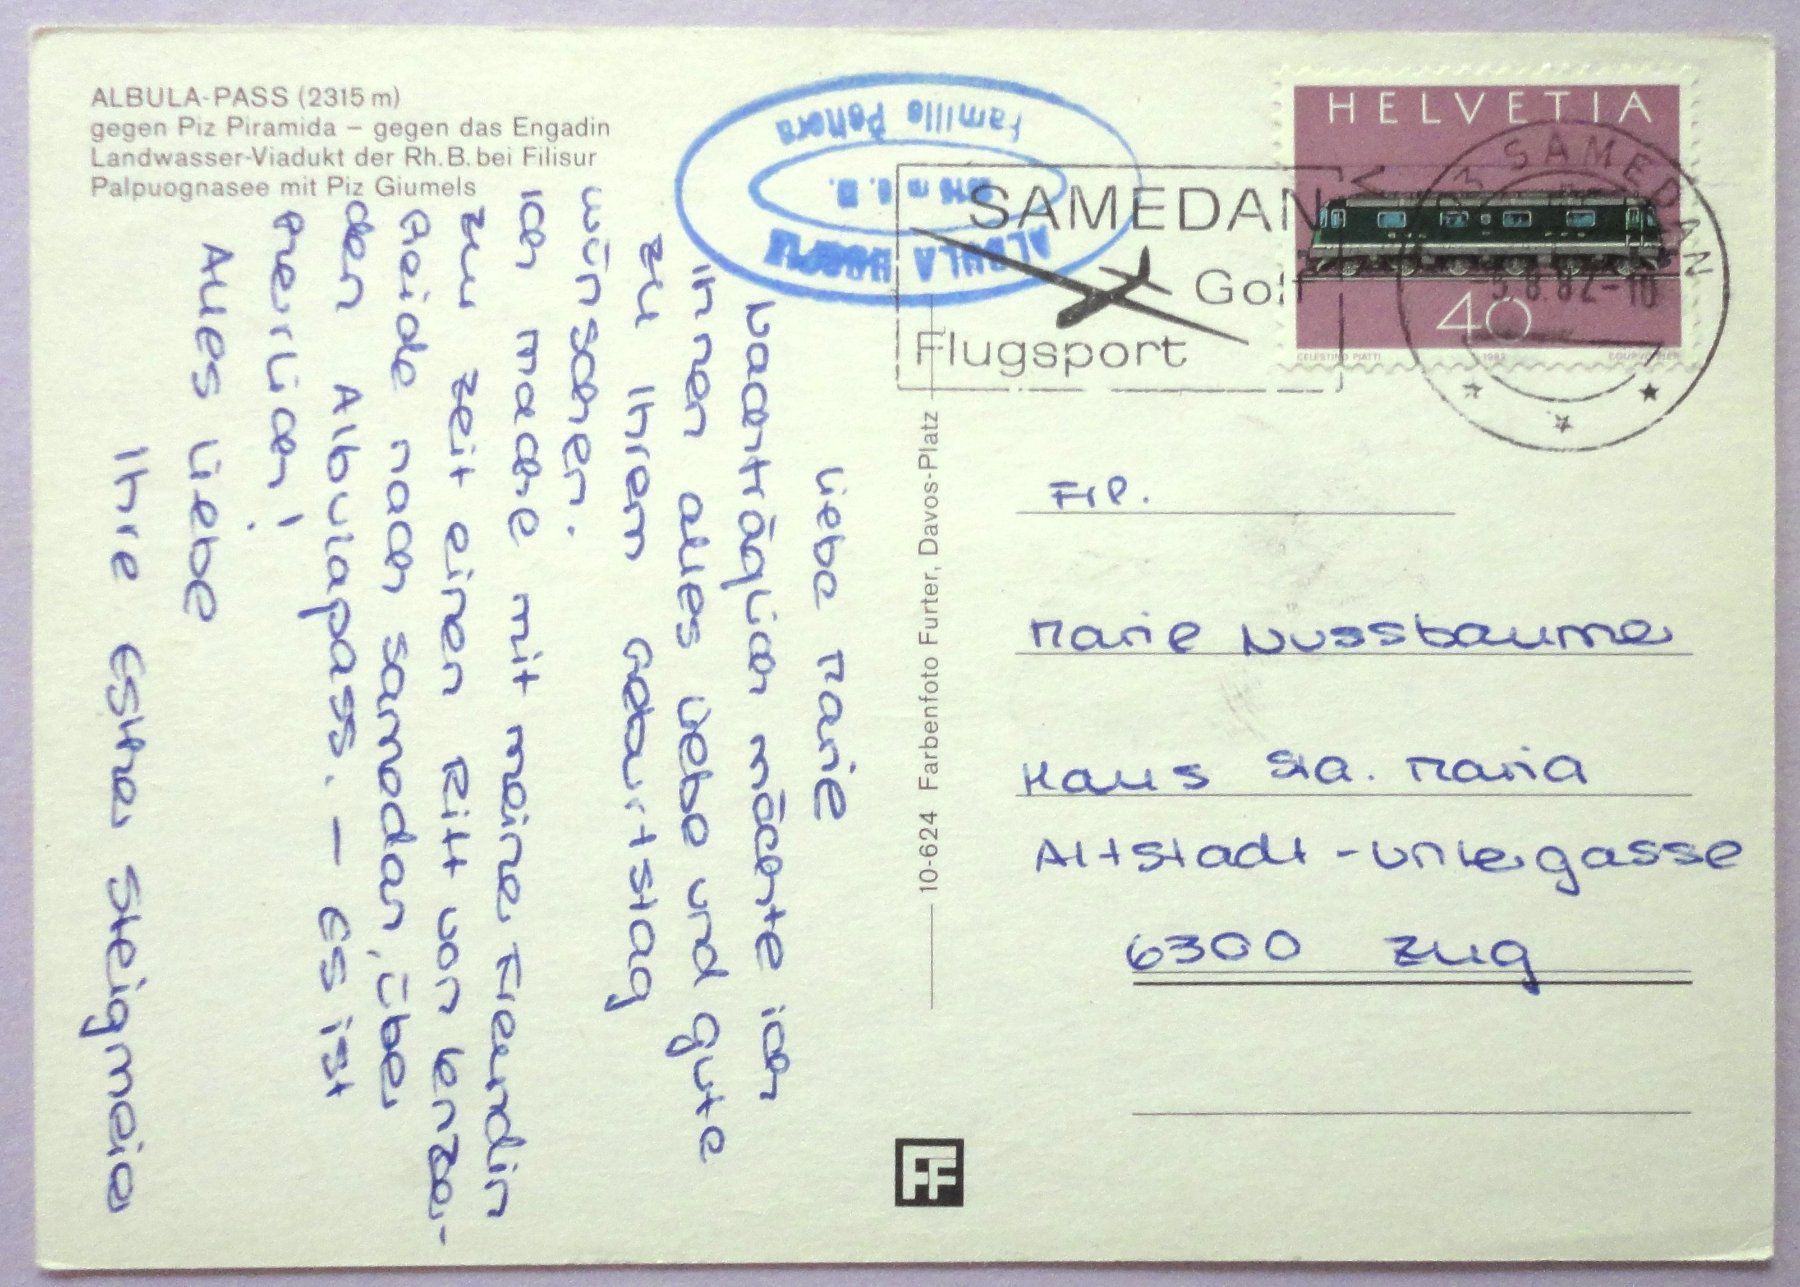 ALBULA-PASS (2315 m)
gegen Piz Piramida – gegen das Engadin
Landwasser-Viadukt der Rh. B. bei Filisur
Palpuognasee mit Piz Giumels
Liebe Marie
Nachträglich möchte ich
Ihnen alles Liebe und gute
zu Ihrem Geburtstag
wünschen.
Ich mache mit meine Freundin
zu Zeit einen Ritt von Lenzer-
Heide nach Samedan, über
den Albulapass. – Es ist
Herrlich!
Alles Liebe
Ihre Esther Steigmeier
ALBULA HOSPIZ
2315 m ü. M.
Familie
SAMEDAN
Golf
Flugsport
HELVETIA
40
CELESTINO PIATTI 1982 COURVOISIER
SAMEDAN
8.82-10
10-624 Farbenfoto Furter, Davos-Platz
Frl.
Marie Nussbaumer
Haus Sta. Maria
Altstadt-Untergasse
6300 Zug
FF